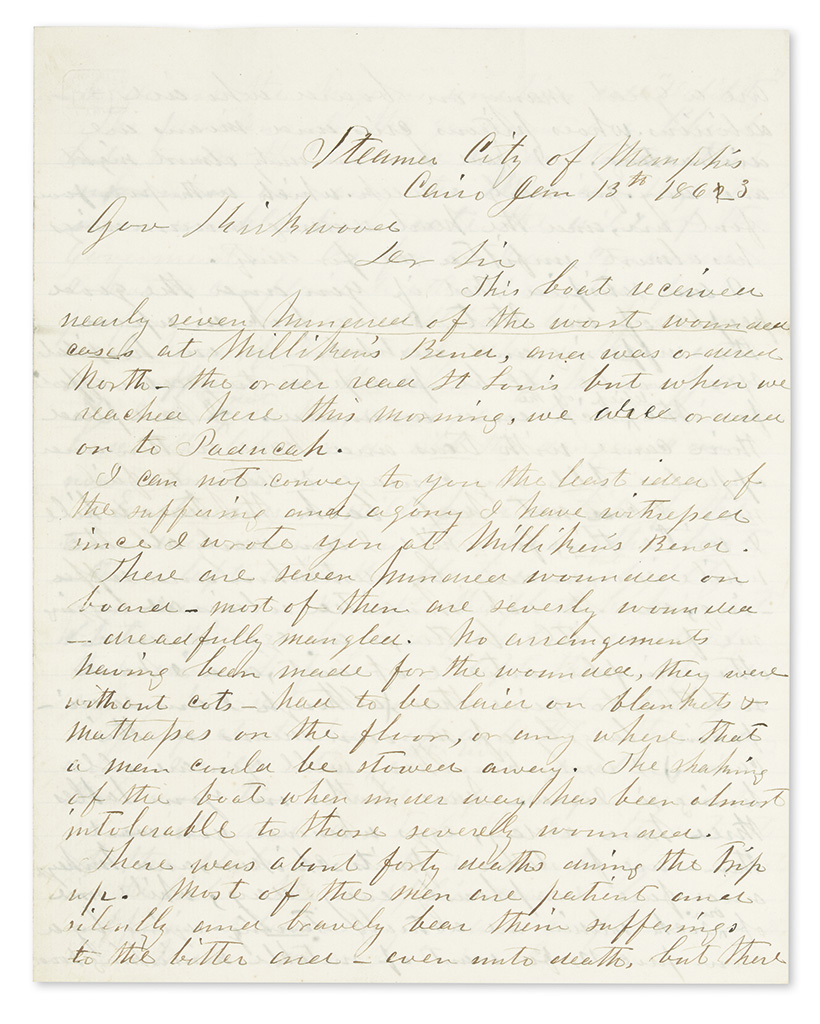 Steamer City of Memphis
Cairo Jan 13th 1863
Gov Kirkwood
Der Sir
This boat received
nearly seven hundred of the worst wounded
cases at Milliken's Bend, and was ordered
North - the order read St Louis but when we
reached here this morning, we are ordered
on to Paducah.
I can not convey to you the least idea of
the suffering and agony I have witnessed
since I wrote you at Milliken's Bend.
There are seven hundred wounded on
board - most of them are severly wounded
- dreadfully mangled. No arrangements
having been made for the wounded, they were
without cots - had to be laid on blankets &
mattrasses on the floor, or any where that
a man could be stowed away. The shaking
of the boat when under way has been almost
intolerable to those severely wounded.
There was about forty deaths during the trip
up. Most of the men are patient and
silently and bravely bear their sufferings
to the bitter end - even unto death, but there